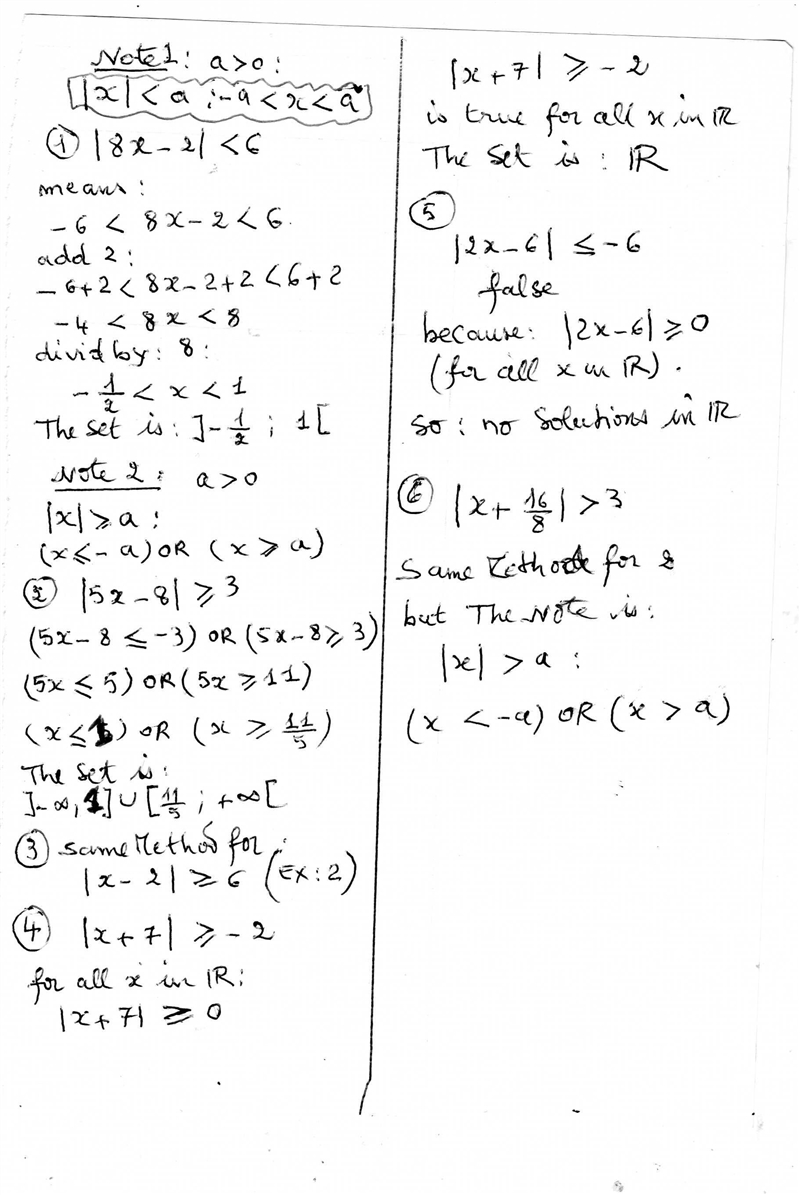 Note 1: a>0:
|x| < a ; -a < x < a
① |8x - 2| < 6
means:
-6 < 8x - 2 < 6.
add 2:
-6+2 < 8x - 2+2 < 6+2
-4 < 8x < 8
divid by: 8:
-1/2 < x < 1
The set is: ]-1/2 ; 1[
Note 2: a>0
|x| ⩾ a :
(x ⩽ -a) OR (x ⩾ a)
② |5x - 8| ⩾ 3
(5x - 8 ⩽ -3) OR (5x - 8 ⩾ 3)
(5x ⩽ 5) OR (5x ⩾ 11)
(x ⩽ 1) OR (x ⩾ 11/5)
The set is:
]-∞, 1] ∪ [11/5 ; +∞[
③ same Method for:
|x - 2| ⩾ 6 (EX: 2)
④ |x + 7| ⩾ -2
for all x in ℝ:
|x + 7| ⩾ 0
|x + 7| ⩾ -2
is true for all x in ℝ
The Set is: ℝ
⑤
|2x - 6| ⩽ -6
false
because: |2x - 6| ⩾ 0
(for all x in ℝ).
so: no Solutions in ℝ
⑥ |x + 16/8| > 3
Same Method for 2
but The Note is:
|x| > a :
(x < -a) OR (x > a)